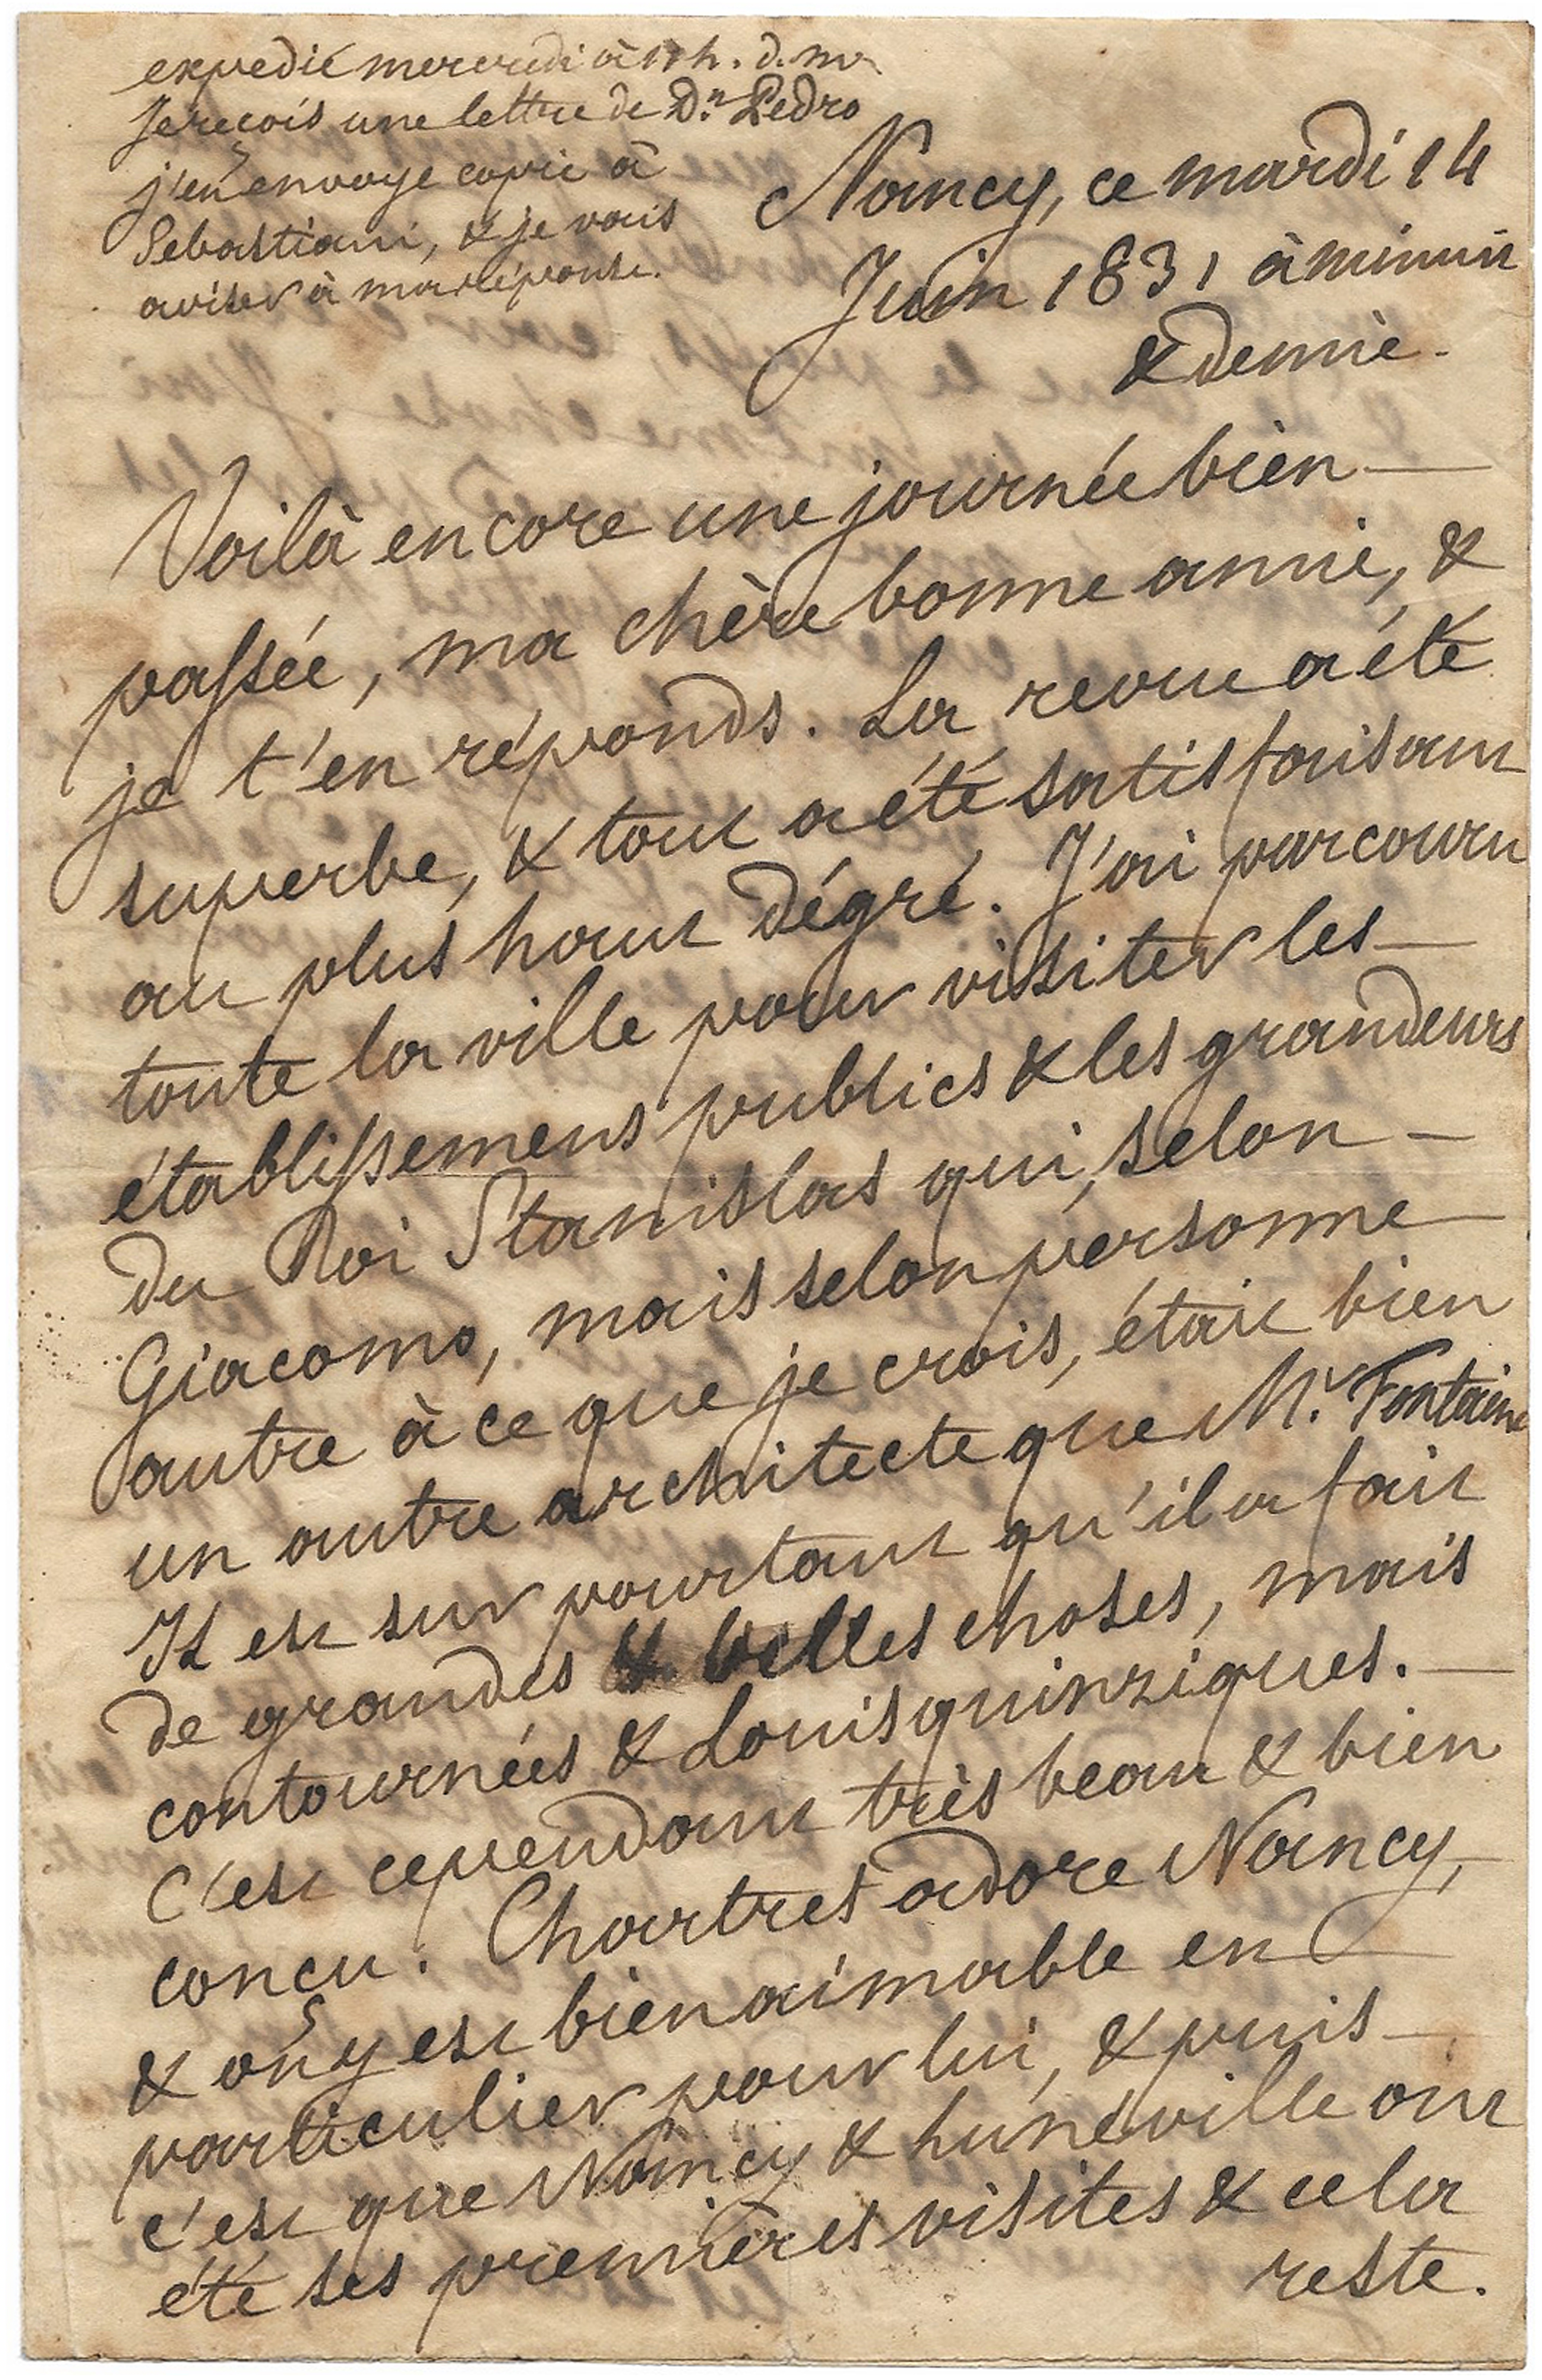 expedié mercredi à 11 h. d. m.
Je reçois une lettre de Dn. Pedro
j'en envoye copie à
Sebastiani, & je vais
aviser à ma réponse.
Nancy, ce mardi 14
Juin 1831 à minuit
& demie.
Voilà encore une journée bien
passée, ma chère bonne amie, &
je t'en réponds. La revue a été
superbe, & tout a été satisfaisant
au plus haut dégré. J'ai parcouru
toute la ville pour visiter les
établissemens publics & les grandeurs
du Roi Stanislas qui, selon
Giacomo, mais selon personne
autre à ce que je crois, était bien
un autre architecte que Mr. Fontaine
Il est sur pourtant qu'il a fait
de grandes & belles choses, mais
contournées & Louisquinziques.
C'est cependant très beau & bien
conçu. Chartres adore Nancy,
& on y est bien aimable en
particulier pour lui, & puis
c'est que Nancy & Lunéville ont
été ses premières visites & cela
reste.